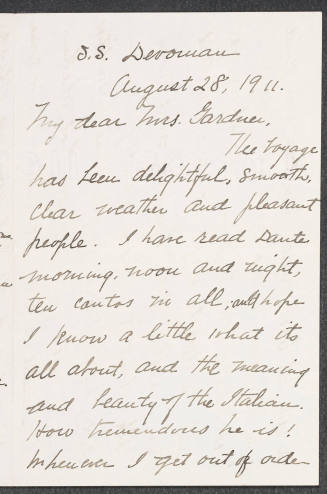 S.S. Devonian
August 28, 1911.
My dear Mrs. Gardner,
The voyage
has been delightful, smooth,
clear weather and pleasant
people. I have read Dante
morning, noon and night,
ten cantos in all, and hope
I know a little what its
all about, and the meaning
and beauty of the Italian.
How tremendous he is!
Whenever I get out of order